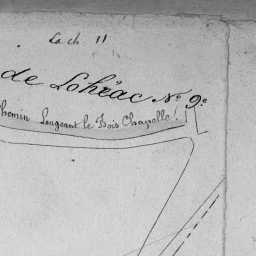 La ch. 11
de Lohéac No 9e
chemin Longeant le Bois Chapelle